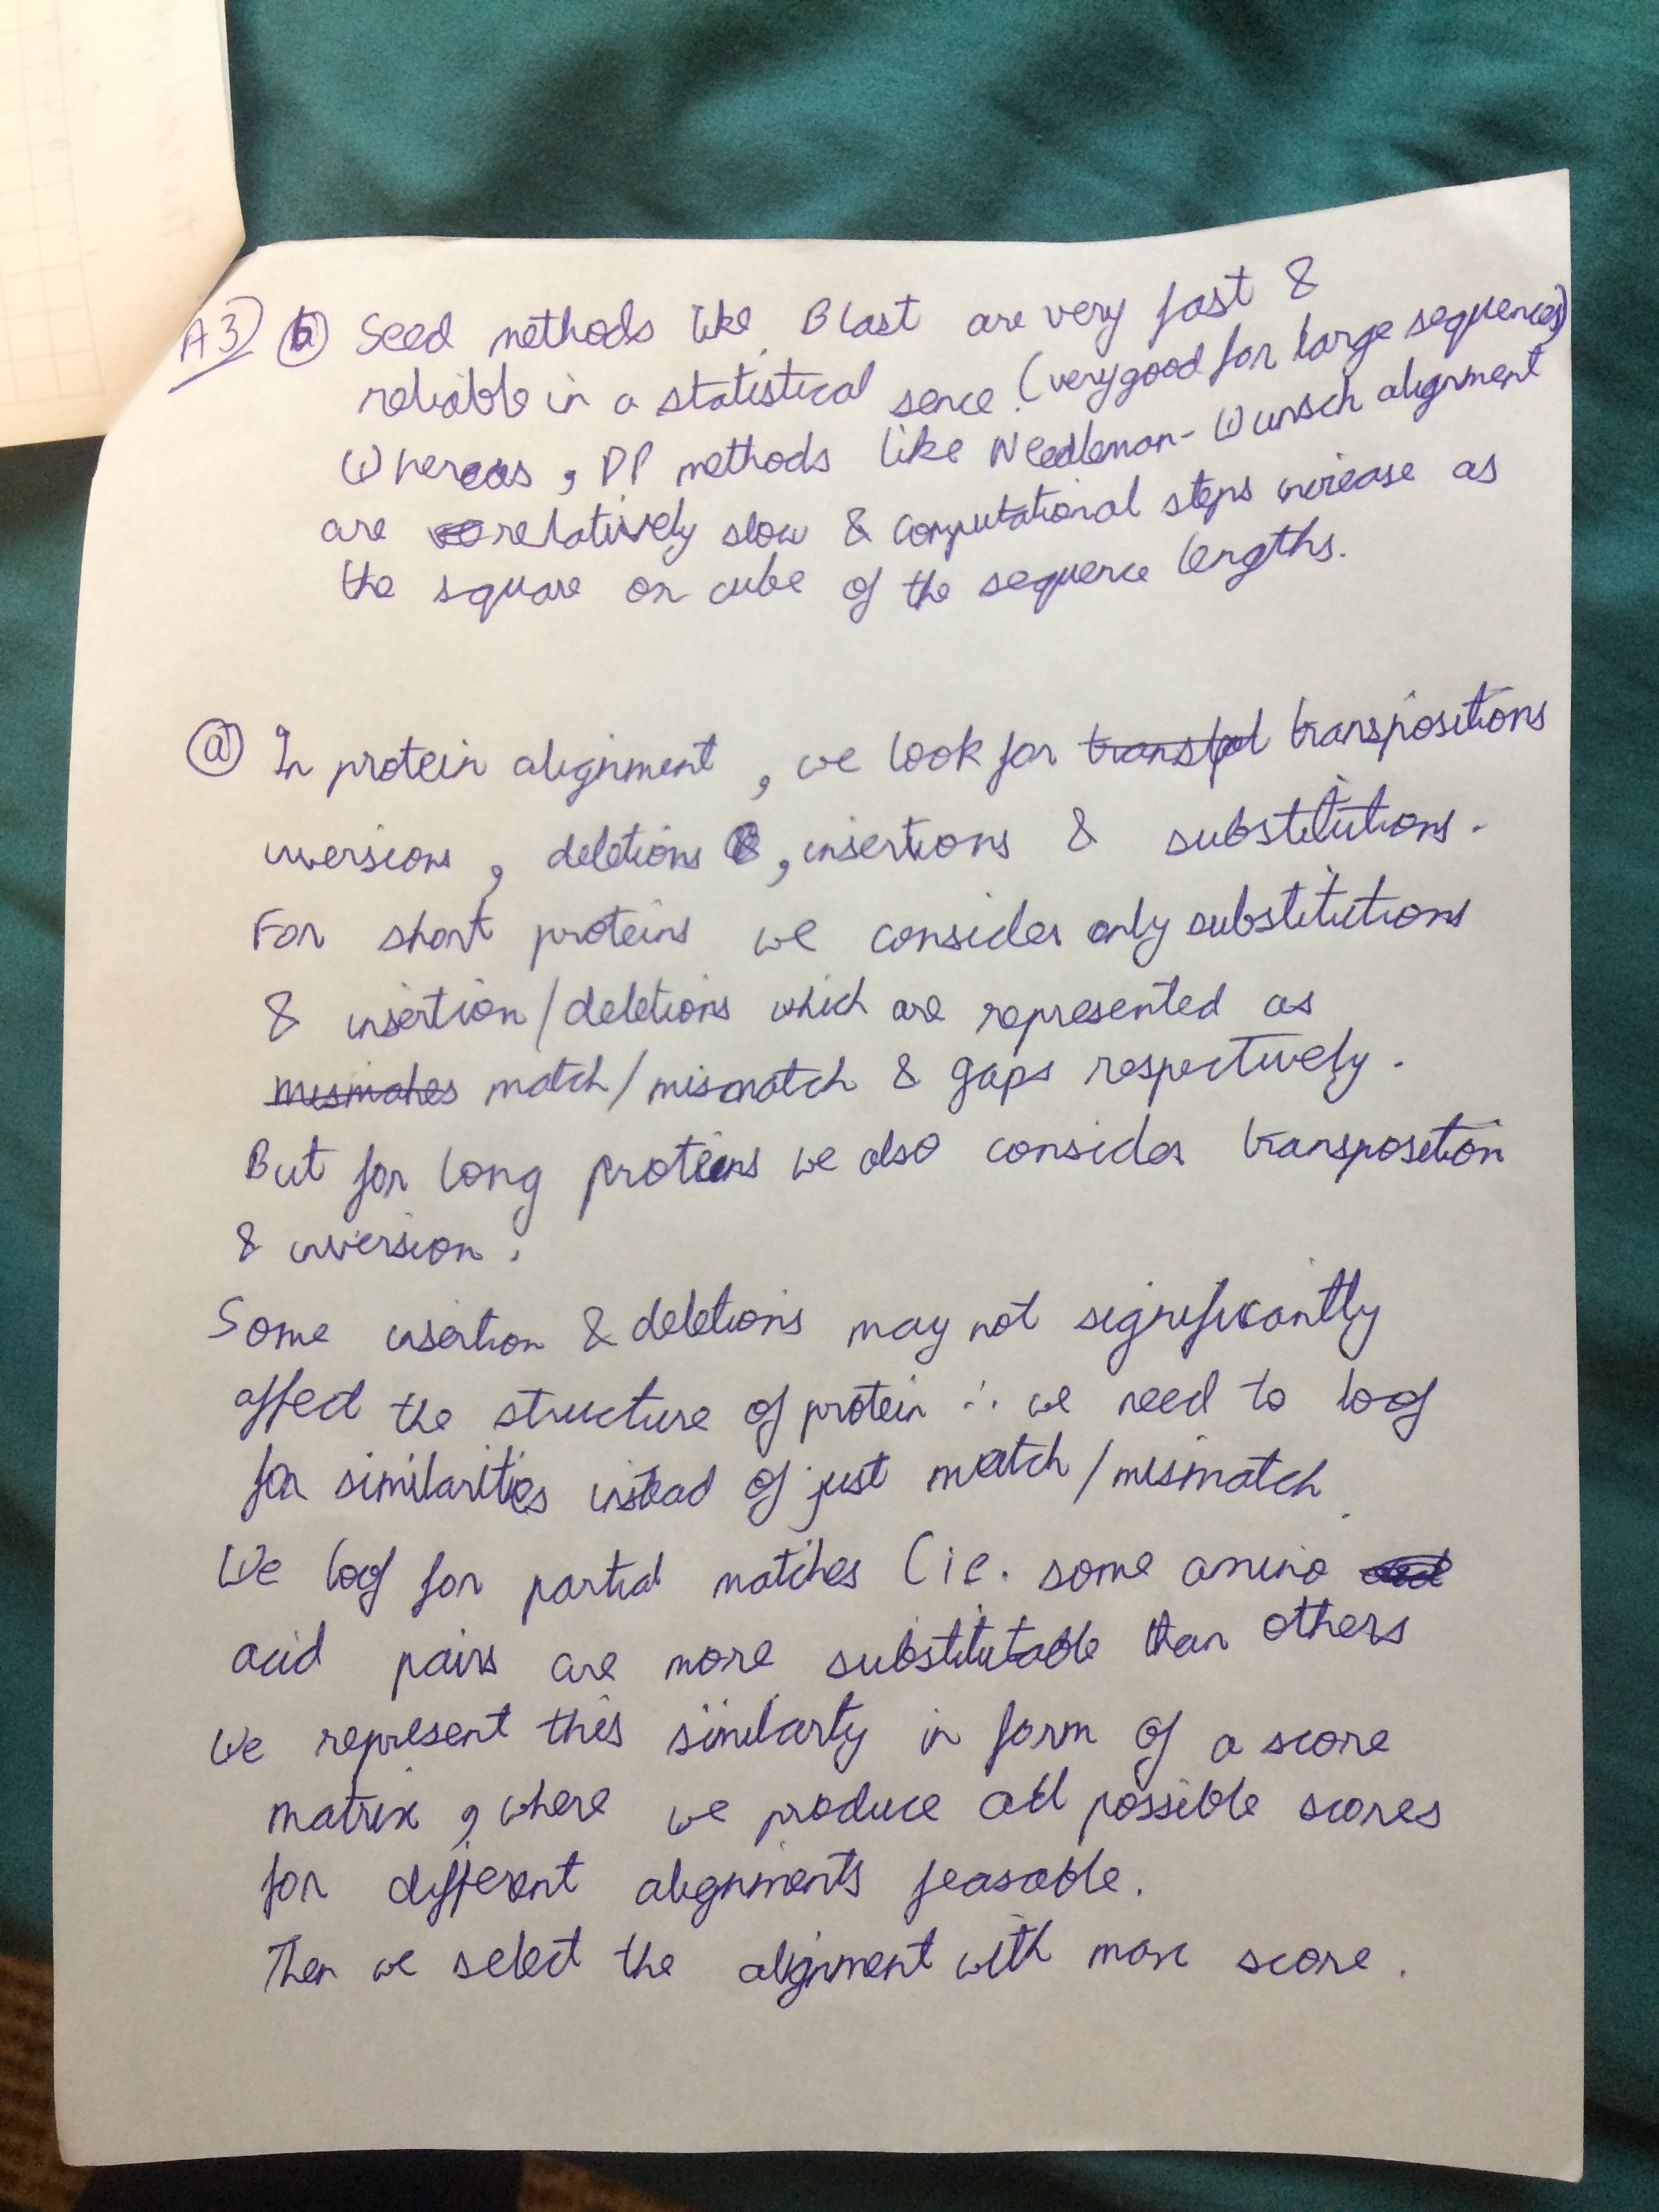 A3) b) Seed methods like Blast are very fast &
reliable in a statistical sence. (very good for large sequences)
Whereas, DP methods like Needleman-Wunsch alignment
are relatively slow & computational steps increase as
the square or cube of the sequence lengths.
a) In protein alignment, we look for transpositions
inversions, deletions, insertions & substitutions.
For short proteins we consider only substitutions
& insertion/deletions which are represented as
match/mismatch & gaps respectively.
But for long proteins we also consider transposition
& inversion.
Some insertion & deletions may not significantly
affect the structure of protein ∴ we need to look
for similarities instead of just match/mismatch.
We look for partial matches (i.e. some amino
acid pairs are more substitutable than others
We represent this similarty in form of a score
matrix, where we produce all possible scores
for different alignments feasable.
Then we select the alignment with max score.